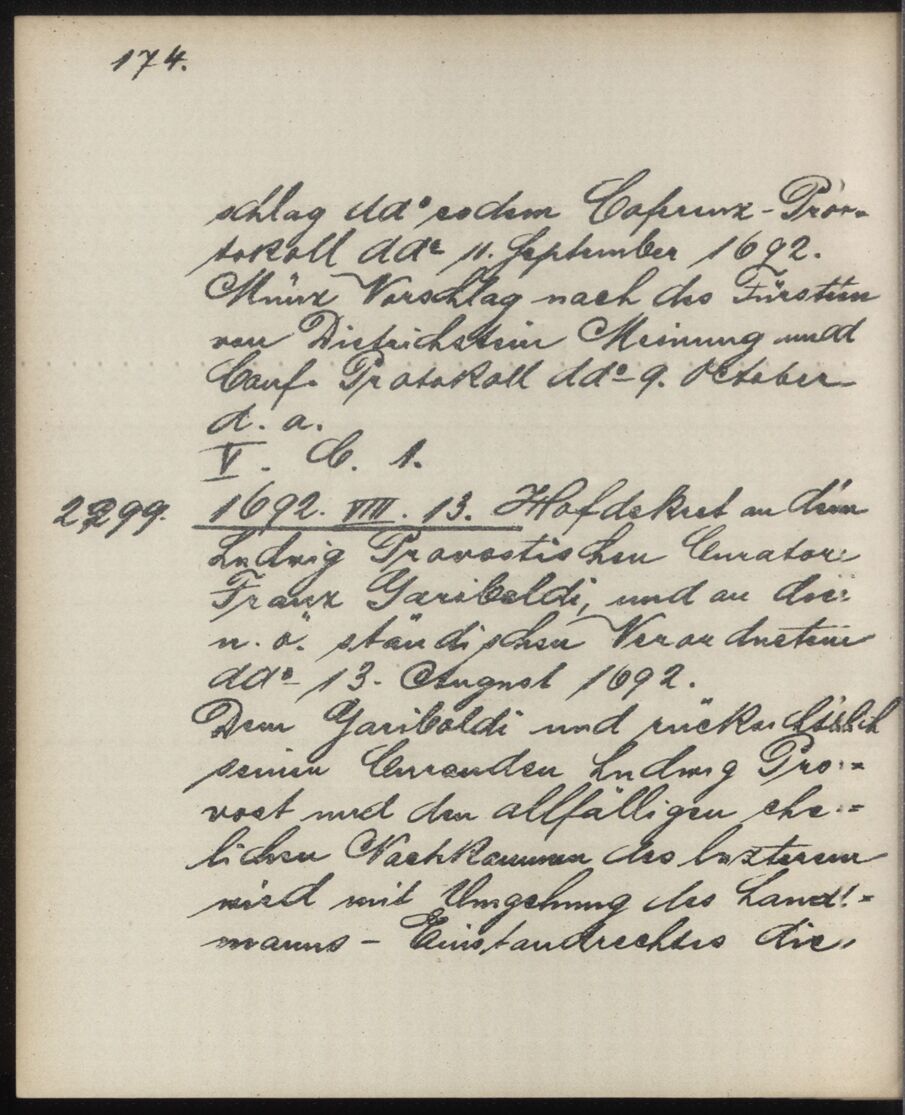 174.
schlag ddº eodem Conferenz-Pro-
tokoll ddº 11. September 1692.
Münz Vorschlag nach des Fürsten
von Dietrichstein Meinung und
Conf. Protokoll ddº 9. October
d. a.
V. C. 1.
2299. 1692. VIII. 13. Hofdekret an dem
Ludwig Provostischen Curator
Franz Gariboldi, und an die
n. ö. ständischen Verordneten
ddº 13. August 1692.
Dem Gariboldi und rücksichtlich
seinen Curanden Ludwig Pro-
vost und den allfälligen ehe-
lichen Nachkommen des letzteren
wird mit Umgehung des Land-
manns-Einstandrechtes die